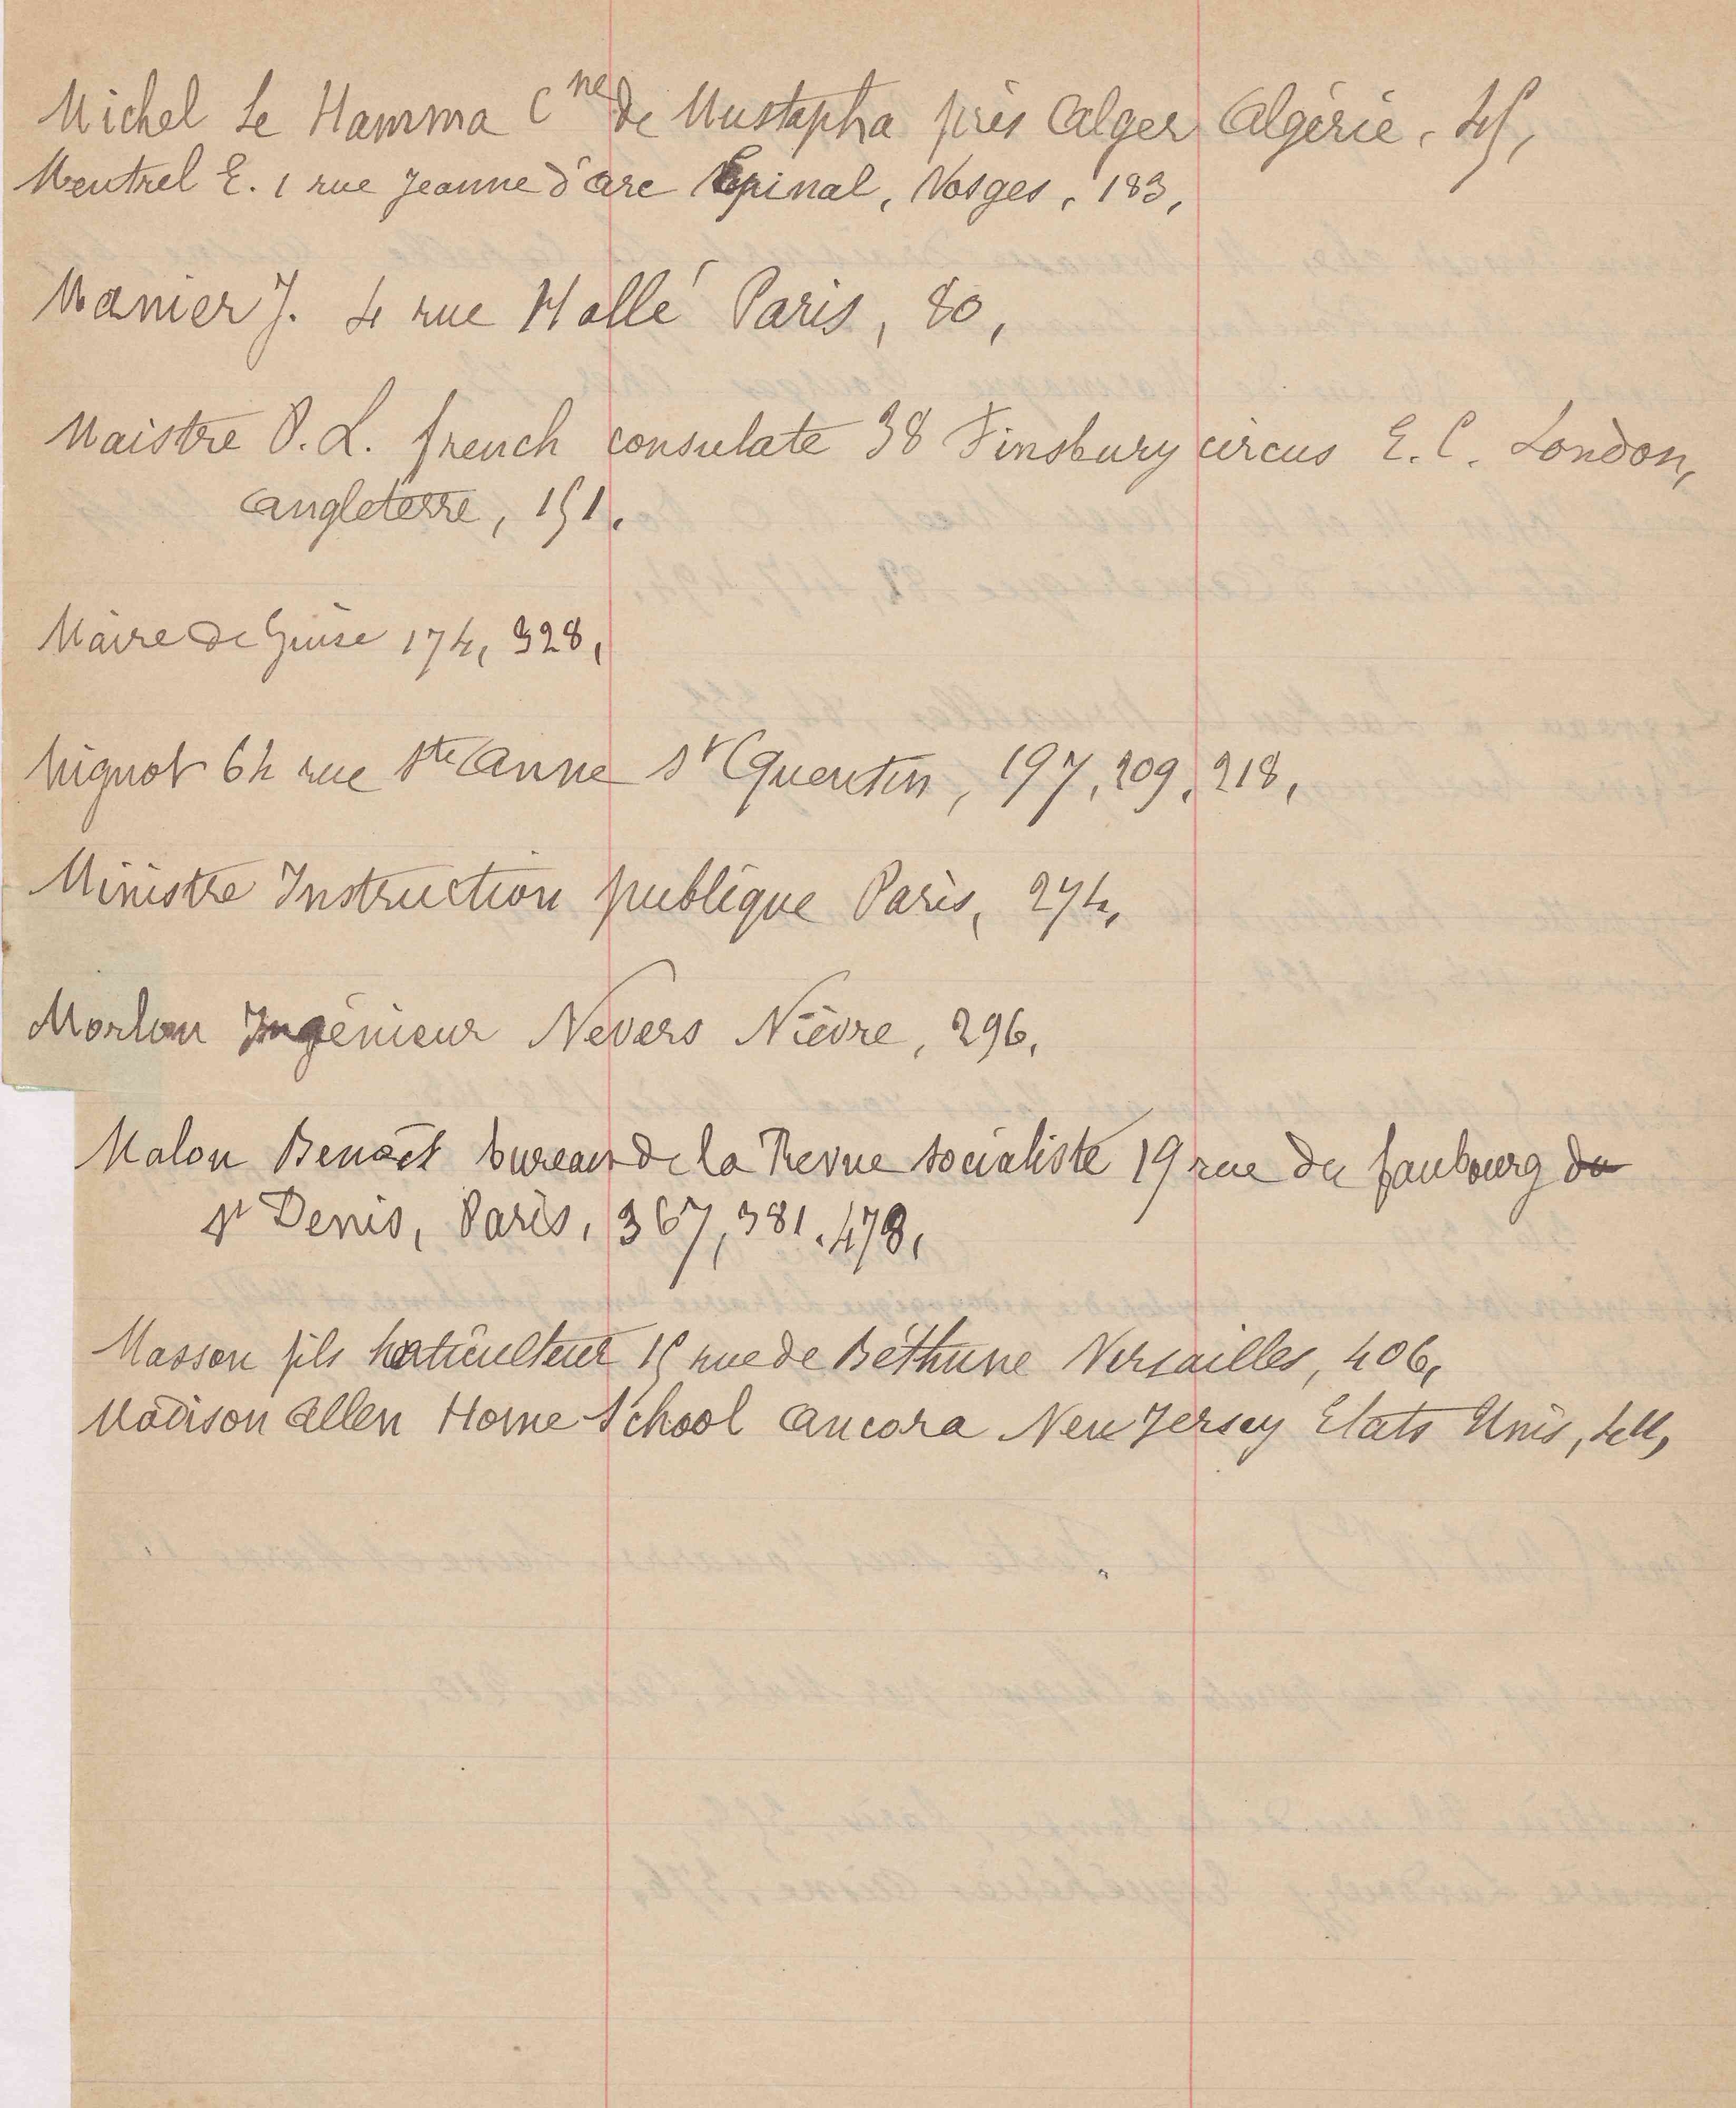 Michel Le Hamma Cne de Mustapha près Alger Algérie, 45,
Mentrel E. 1 rue Jeanne d'arc Epinal, Vosges, 183,
Manier J. 4 rue Hallé Paris, 80,
Maistre P. L. french consulate 38 Finsbury circus E. C. London,
Angleterre, 151,
Maire de Guise 174, 328,
Mignot 64 rue Ste Anne St Quentin, 197, 209, 218,
Ministre Instruction publique Paris, 274,
Morlon Ingénieur Nevers Nièvre, 296,
Malon Benoit bureau de la Revue socialiste 19 rue du faubourg du
St Denis, Paris, 367, 381, 478,
Masson fils horticulteur 15 rue de Béthune Versailles, 406,
Madison Allen Home School Ancora New Jersey Etats Unis,